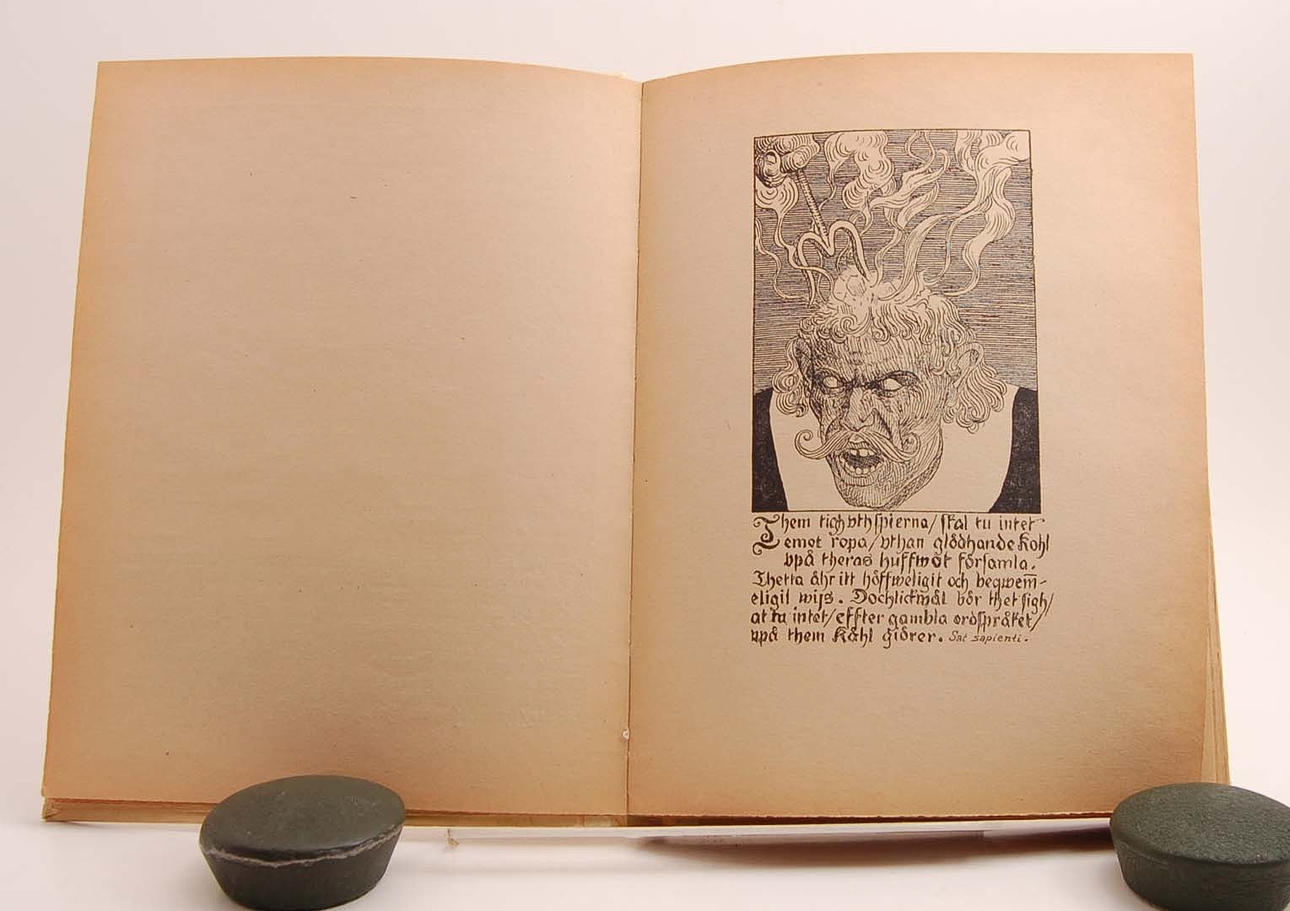 Them tigh vthspierna/skal tu intet
emot ropa/vthan glödhande Kohl
vpå theras huffwöt församla.
Thetta ähr itt höffweligit och beqwem̄-
eligit wijs. Dochlickmäl bör thet sigh/
at tu intet/effter gambla ordspråket/
vpå them Kåhl giörer. Sat sapienti.